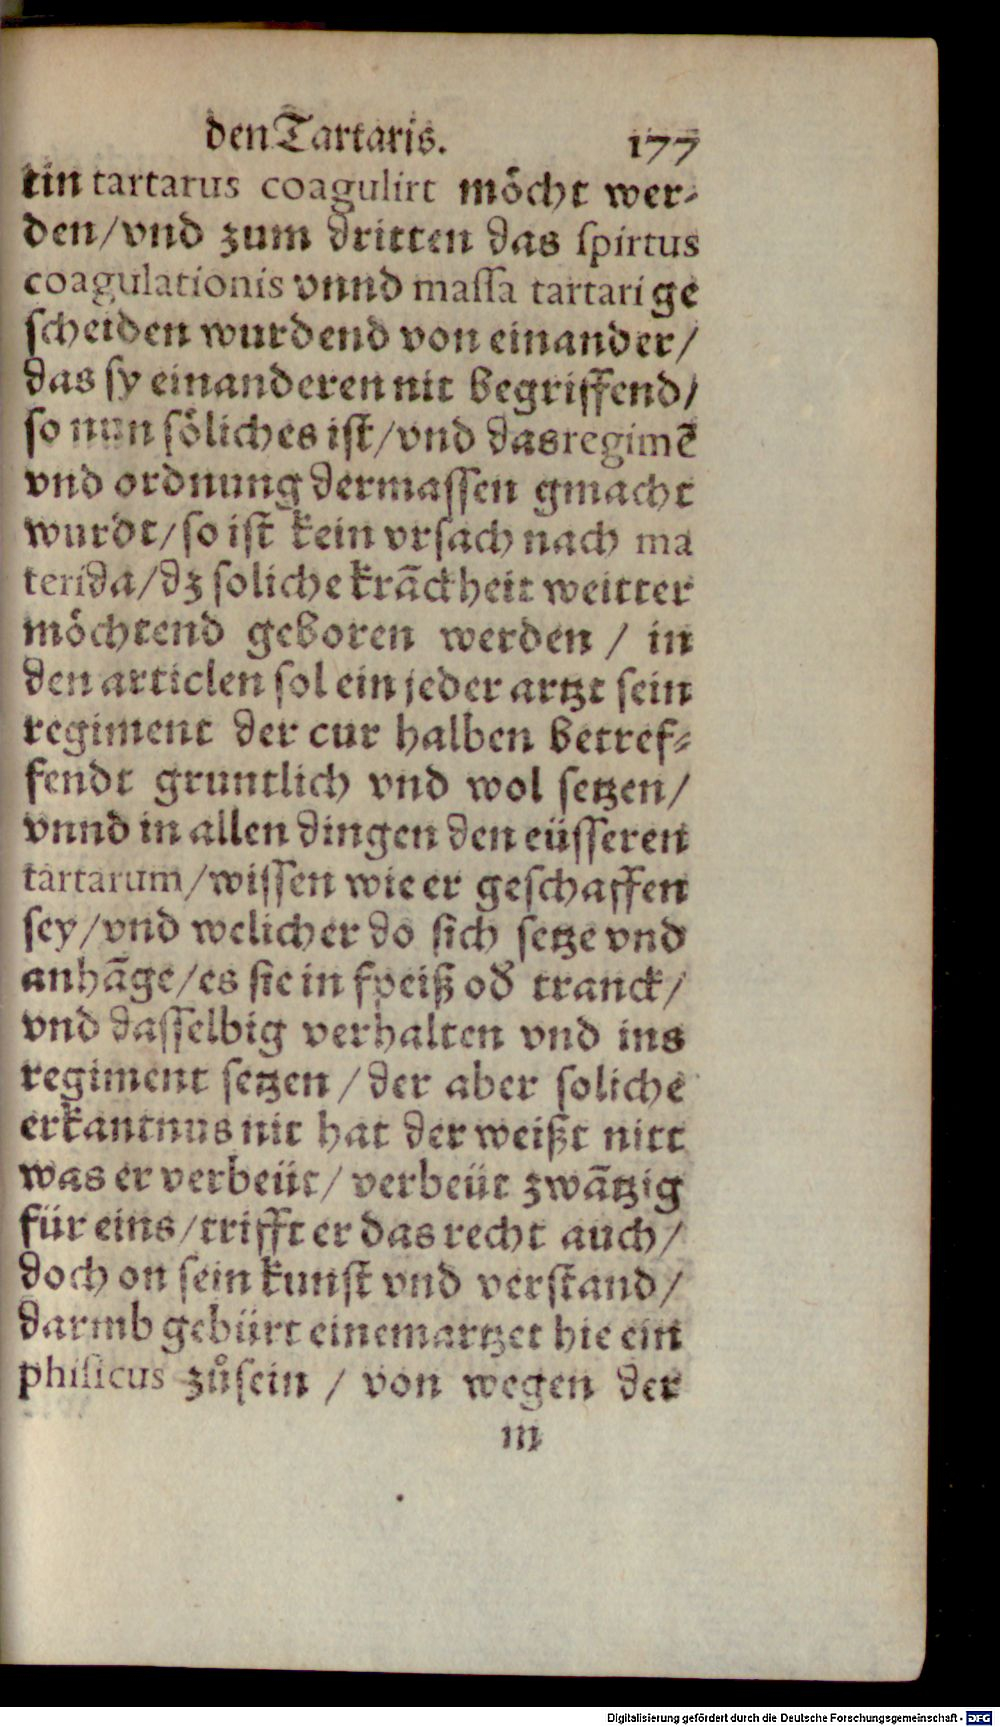 den Tartaris. 177
tin tartarus coagulirt möcht wer⸗
den/vnd zum dritten das spirtus
coagulationis vnnd massa tartari ge
scheiden wurdend von einander/
das sy einanderen nit begriffend/
so nun söliches ist/vnd das regimē
vnd ordnung dermassen gmacht
wurdt/so ist kein vrsach nach ma
terida/dz soliche krāckheit weitter
möchtend geboren werden / in
den articlen sol ein jeder artzt sein
regiment der cur halben betref⸗
fendt gruntlich vnd wol setzen/
vnnd in allen dingen den eüsseren
tartarum/wissen wie er geschaffen
sey/vnd welicher do sich setze vnd
anhāge/es sie in speiß od̄ tranck/
vnd dasselbig verhalten vnd ins
regiment setzen / der aber soliche
erkantnus nit hat der weißt nitt
was er verbeüt/ verbeüt zwātzig
für eins/trifft er das recht auch/
doch on sein kunst vnd verstand/
darmb gebürt einem artzet hie ein
phisicus zůsein / von wegen der
m
Digitalisierung gefördert durch die Deutsche Forschungsgemeinschaft - DFG